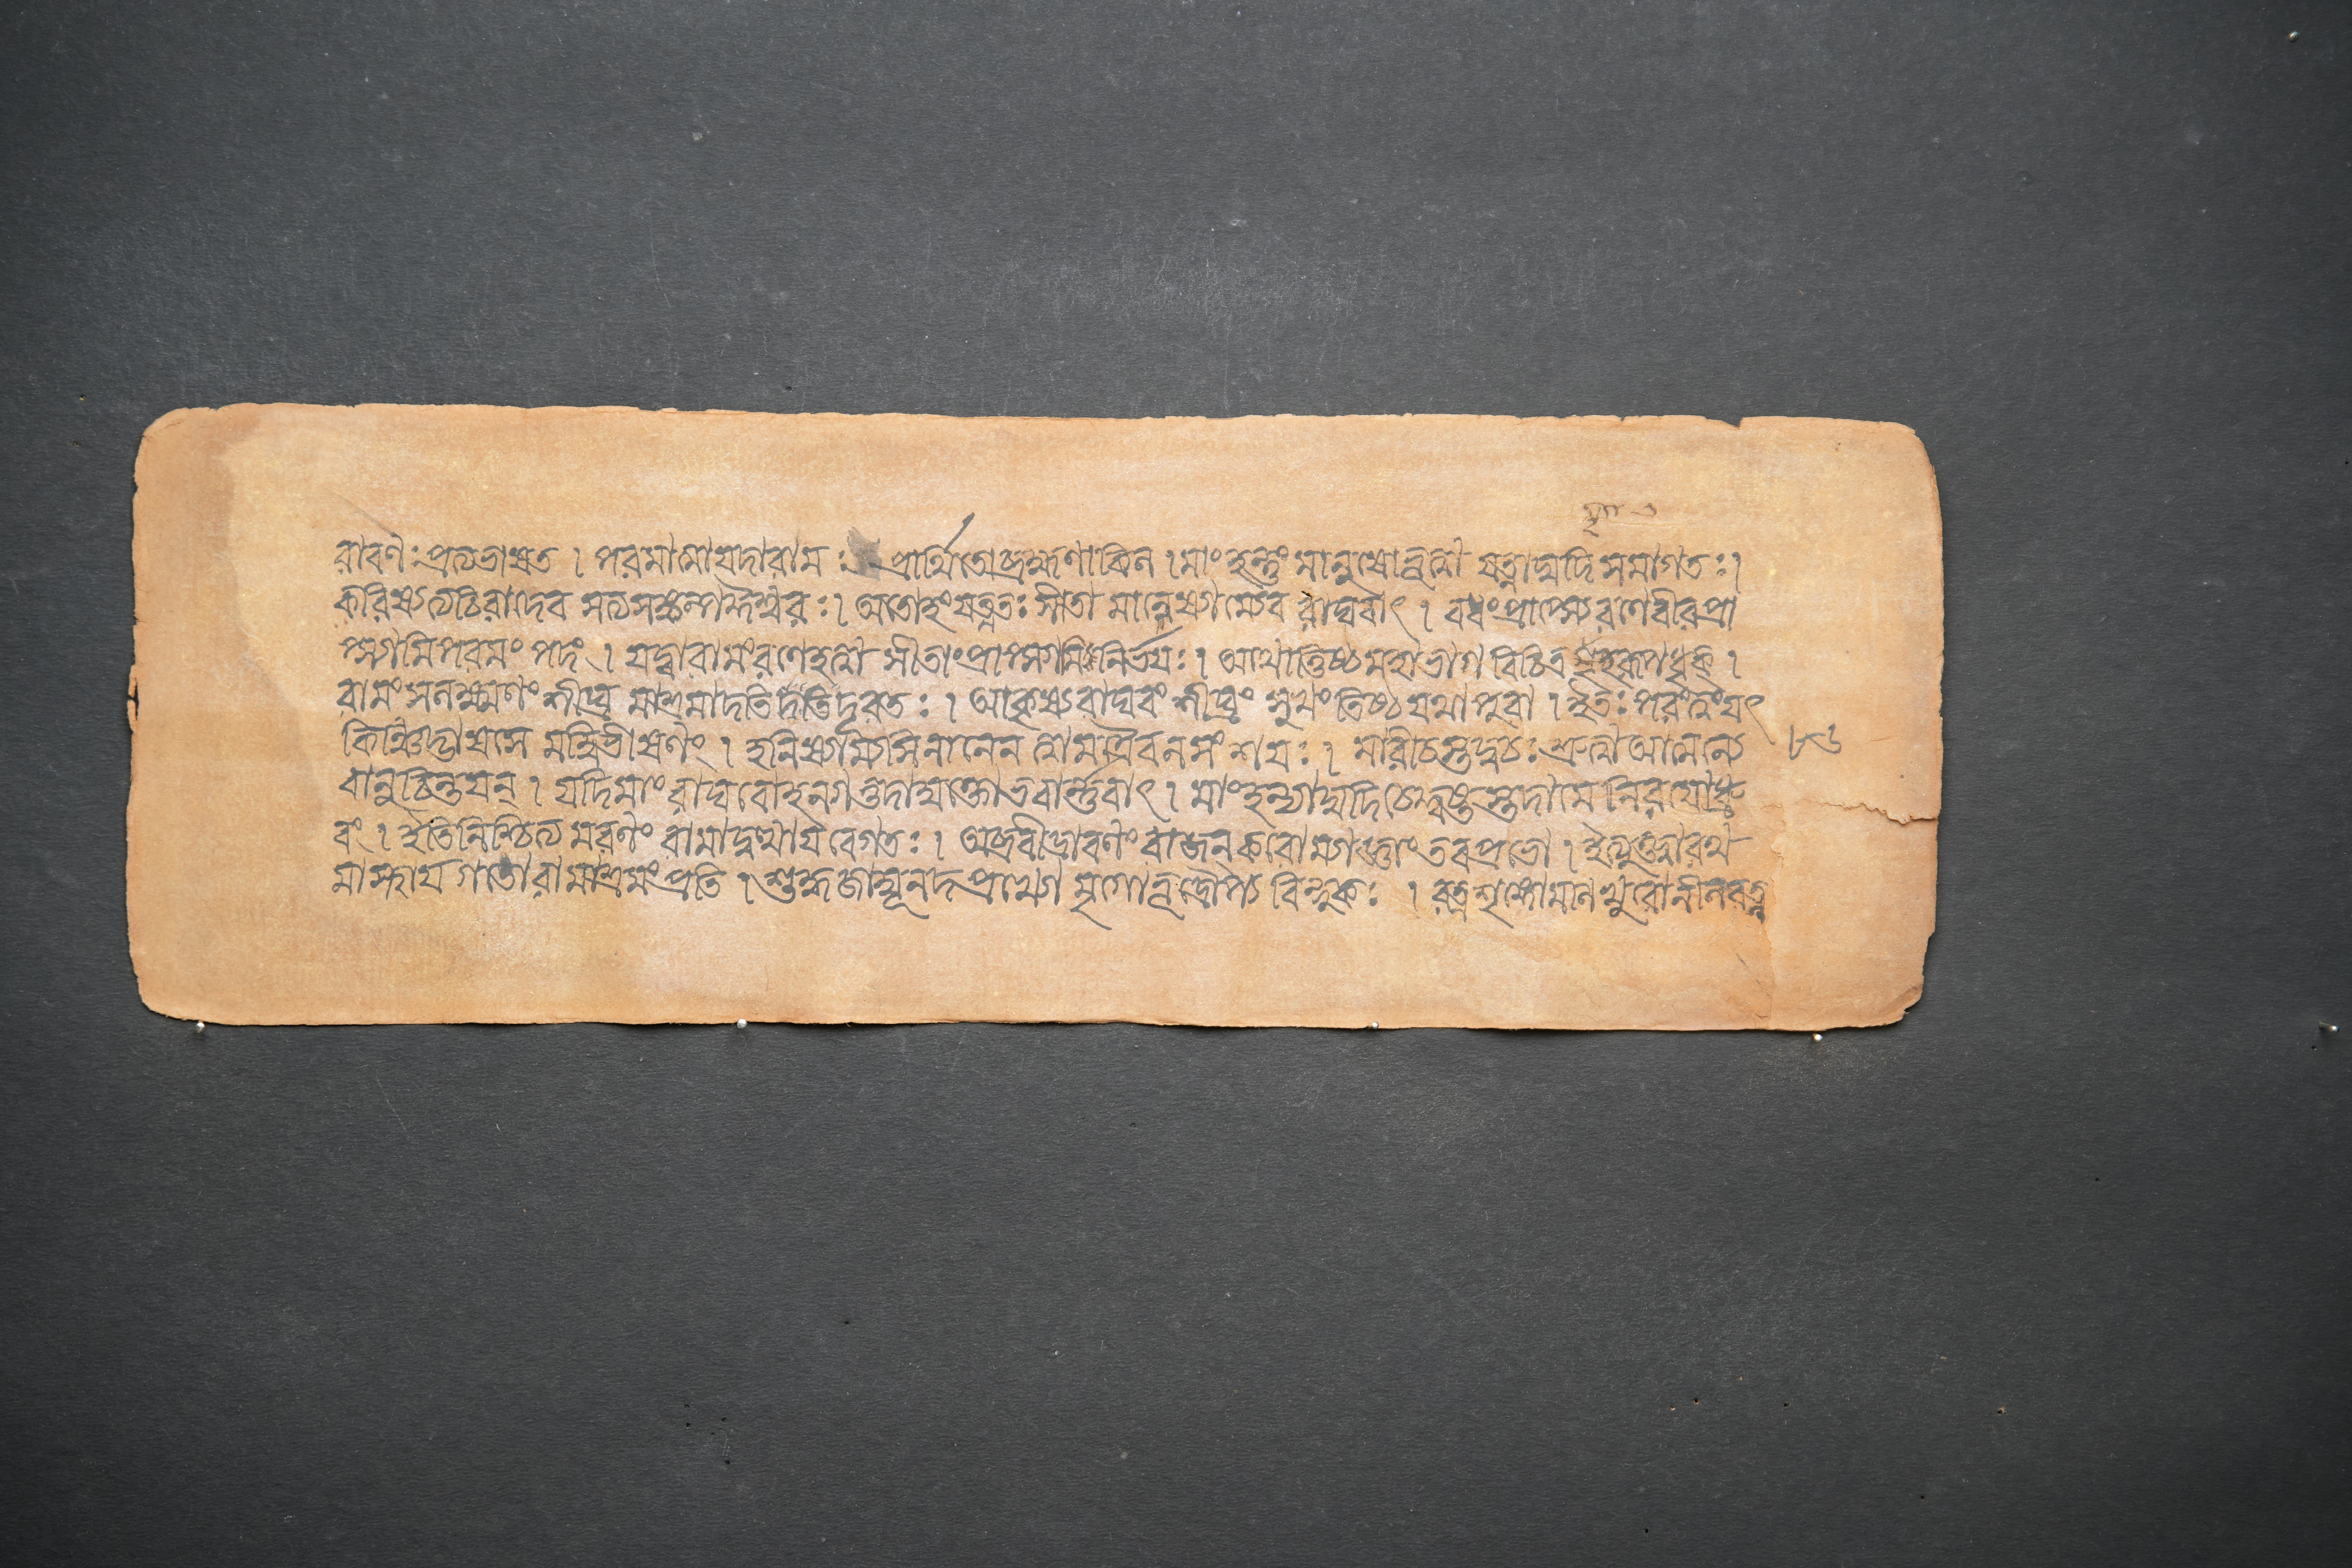 রাবণঃ প্রত্যভাষত । পরমাত্মাযদারামঃ প্রার্থিতোব্রহ্মণাকিল । মাং হন্তুং মানুষোভূত্বা যত্নাদ্যদি সমাগতঃ ।
করিষ্যত্যচিরাদেব সত্যসঙ্কল্পঈশ্বরঃ । অতোহংযত্নতঃ সীতা মানেষ্যাম্যেব রাঘবাৎ । বধং প্রাপ্স্যেরণেবীরপ্রা
প্স্যামিপরমং পদং । যদ্বারামংরণেহত্বা সীতাং প্রাপ্স্যামি নির্ভযঃ । আথাত্তিষ্ঠ মহাভাগ বিচিত্র রূপধৃক্ ।
রামং সলক্ষ্মণং শীঘ্র মাশ্রমাদতি দূরতঃ । আকৃষ্য রাঘবং শীঘ্রং সুখং তিষ্ঠ যথা পুরা । ইতঃ পরং যৎ
কিঞ্চিদ্ভাষসে মদ্বিভীষণং । হনিষ্যাম্যসিনানেন ত্বামত্রৈবনসংশযঃ । মারীচস্তদ্বচঃ শ্রুত্বা আত্মন্যে ৮৬
বানুচিন্তযন্ । যদিমাং রাঘবোহন্যাত্তদামুক্তোভবার্ণবাৎ । মাং হন্যাদ্যদিচেদ্দুষ্টস্তদামে নিরযোধ্রু
বং । ইতিনিশ্চিত্য মরণং রামাদুত্থায বেগতঃ । অব্রবীদ্রাবণং রাজন্করোম্যাজ্ঞাং তবপ্রভো । ইত্যুক্ত্বারথ
মাস্থায গতোরামাশ্রমংপ্রতি । শুদ্ধজাম্বূনদপ্রখ্যো মৃগোভূদ্রৌপ্য বিন্দুকঃ । রত্নশৃঙ্গোমণিখুরোনীলরত্ন